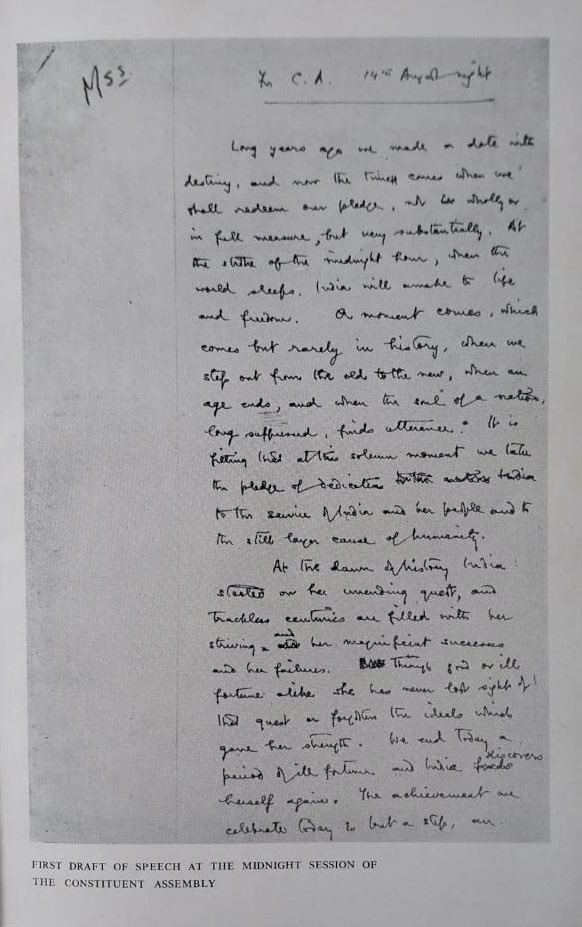 Mss.
For C. A. 14th August night
Long years ago we made a date with
destiny, and now the time comes when we
shall redeem our pledge, not wholly or
in full measure, but very substantially. At
the stroke of the midnight hour, when the
world sleeps, India will awake to life
and freedom. A moment comes, which
comes but rarely in history, when we
step out from the old to the new, when an
age ends, and when the soul of a nation,
long suppressed, finds utterance. It is
fitting that at this solemn moment we take
the pledge of dedication
to the service of India and her people and to
the still larger cause of humanity.
At the dawn of history India
started on her unending quest, and
trackless centuries are filled with her
striving and her magnificent successes
and her failures. Through good or ill
fortune alike she has never lost sight of
that quest or forgotten the ideals which
gave her strength. We end today a
period of ill fortune and India finds discovers
herself again. The achievement we
celebrate today is but a step, an
FIRST DRAFT OF SPEECH AT THE MIDNIGHT SESSION OF
THE CONSTITUENT ASSEMBLY